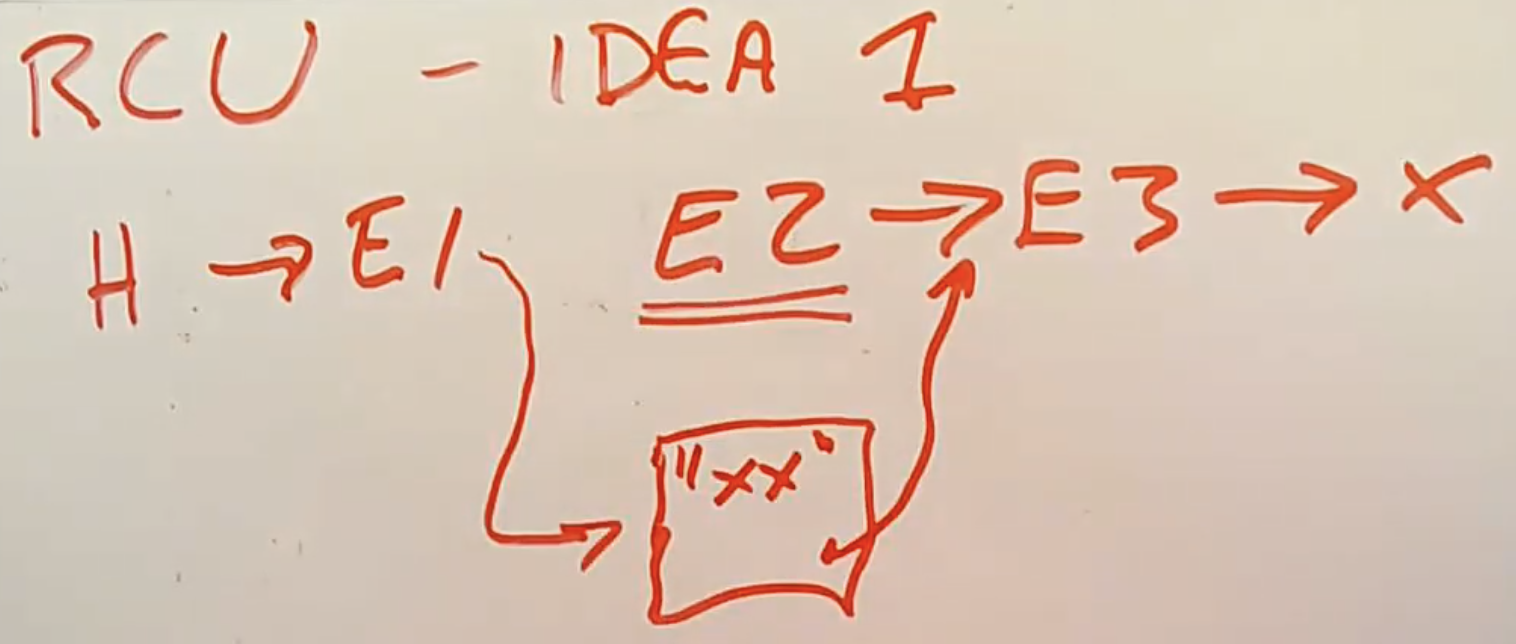 RCU - IDEA 1
H → E1 E2 → E3 → X
"xx"